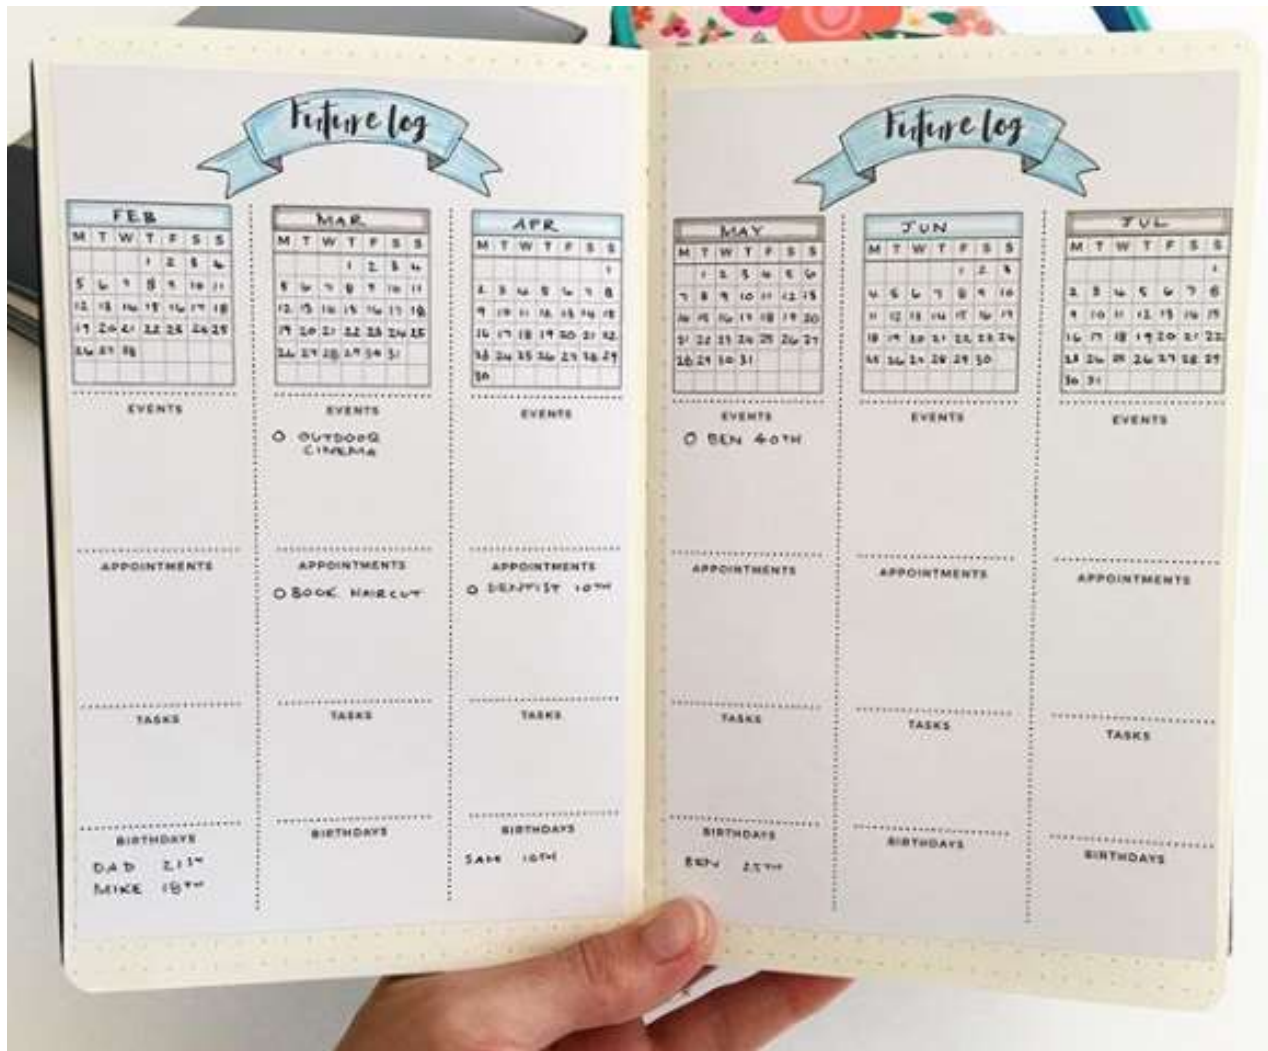 Future log
FEB
M T W T F S S
1 2 3 4
5 6 7 8 9 10 11
12 13 14 15 16 17 18
19 20 21 22 23 24 25
26 27 28
EVENTS
APPOINTMENTS
TASKS
BIRTHDAYS
DAD 21ST
MIKE 18TH
MAR
M T W T F S S
1 2 3 4
5 6 7 8 9 10 11
12 13 14 15 16 17 18
19 20 21 22 23 24 25
26 27 28 29 30 31
EVENTS
OUTDOOR
CINEMA
APPOINTMENTS
BOOK HAIRCUT
TASKS
BIRTHDAYS
APR
M T W T F S S
1
2 3 4 5 6 7 8
9 10 11 12 13 14 15
16 17 18 19 20 21 22
23 24 25 26 27 28 29
30
EVENTS
APPOINTMENTS
DENTIST 10TH
TASKS
BIRTHDAYS
SAM 10TH
Future log
MAY
M T W T F S S
1 2 3 4 5 6
7 8 9 10 11 12 13
14 15 16 17 18 19 20
21 22 23 24 25 26 27
28 29 30 31
EVENTS
BEN 40TH
APPOINTMENTS
TASKS
BIRTHDAYS
BEN 25TH
JUN
M T W T F S S
1 2 3
4 5 6 7 8 9 10
11 12 13 14 15 16 17
18 19 20 21 22 23 24
25 26 27 28 29 30
EVENTS
APPOINTMENTS
TASKS
BIRTHDAYS
JUL
M T W T F S S
1
2 3 4 5 6 7 8
9 10 11 12 13 14 15
16 17 18 19 20 21 22
23 24 25 26 27 28 29
30 31
EVENTS
APPOINTMENTS
TASKS
BIRTHDAYS